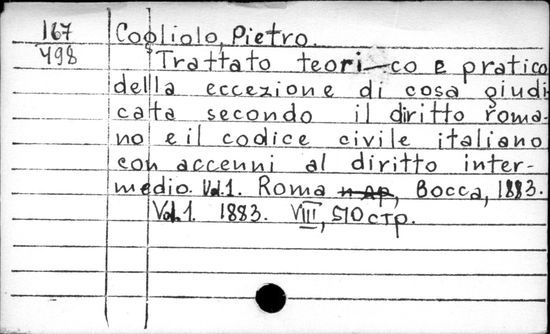 167 Cogliolo, Pietro.
498 Trattato teori-co e pratico
della eccezione di cosa giudi
cata secondo il diritto roma-
no e il codice civile italiano
con accenni al diritto inter-
medio. Vol.1. Roma и др, Bocca, 1883.
Vol.1. 1883. VIII, 510 стр.